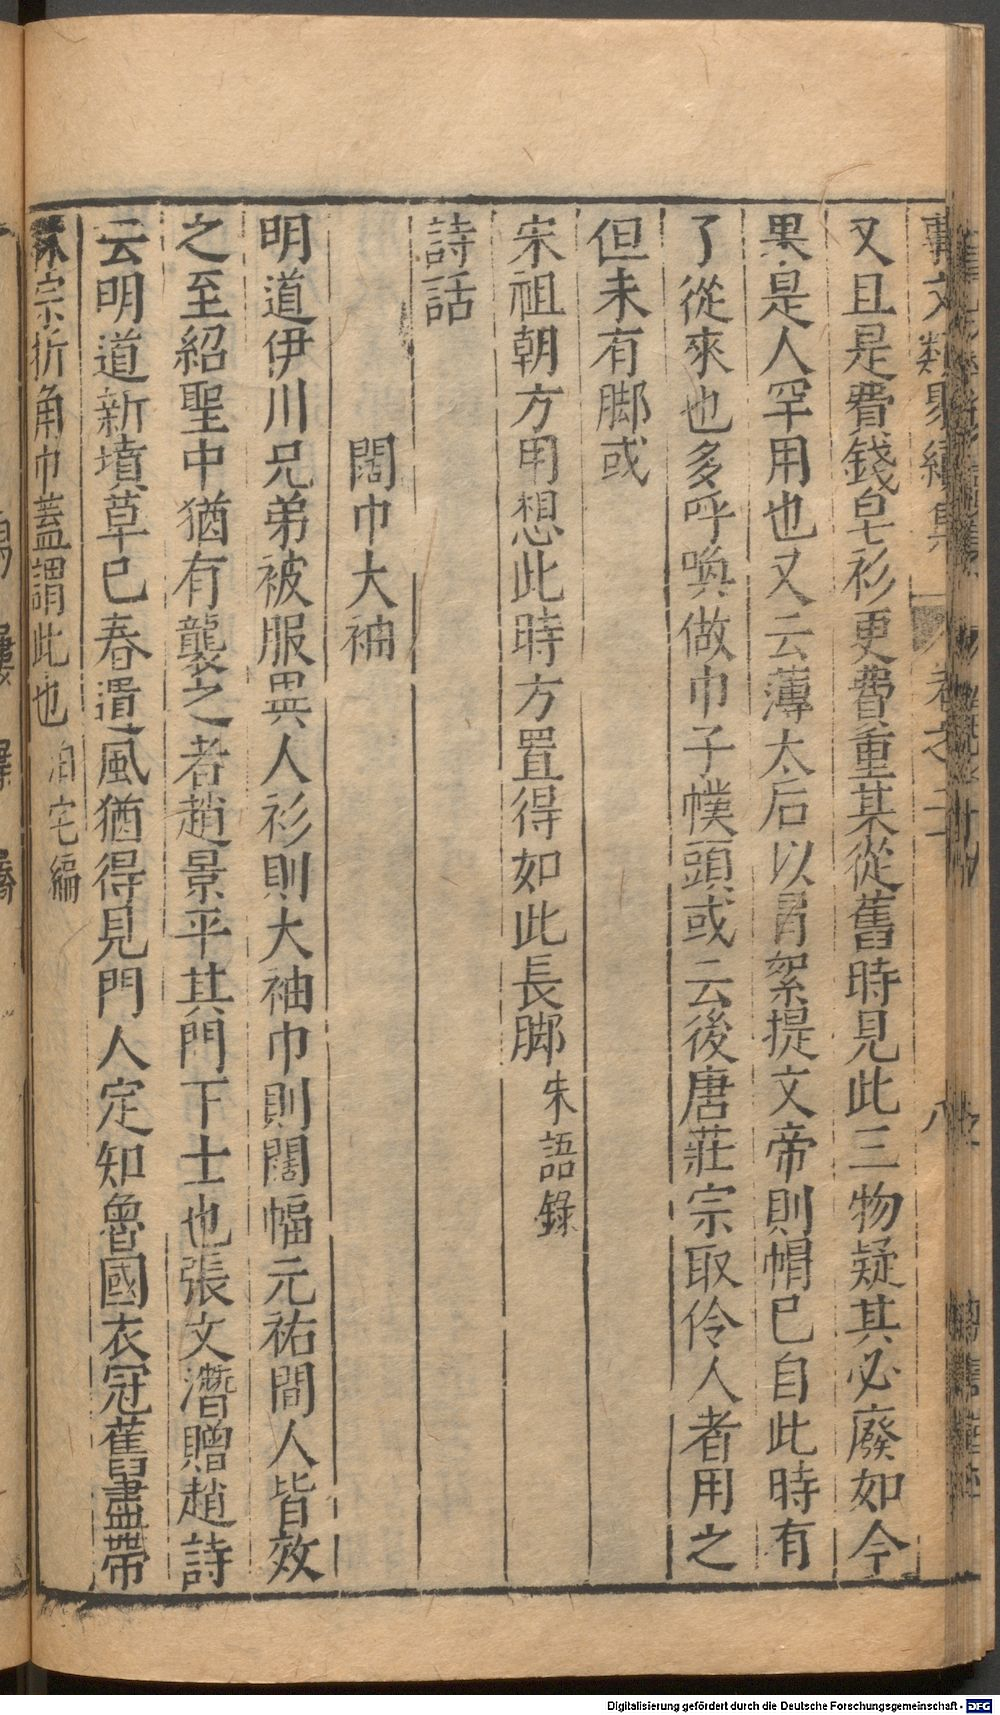 事文類聚續集 卷之二十 八
又且是費錢皂衫更費重某從舊時見此三物疑其必廢如今
果是人罕用也又云薄太后以冐絮提文帝則帽已自此時有
了從來也多呼喚做巾子幞頭或云後唐莊宗取伶人者用之
但未有脚或
宋祖朝方用想此時方置得如此長脚 朱語錄
詩話
闊巾大袖
明道伊川兄弟被服異人衫則大袖巾則闊幅元祐間人皆效
之至紹聖中猶有襲之者趙景平其門下士也張文潛贈趙詩
云明道新墳草已春遺風猶得見門人定知魯國衣冠舊盡帶
林宗折角巾蓋謂此也 泊宅編
Digitalisierung gefördert durch die Deutsche Forschungsgemeinschaft - DFG